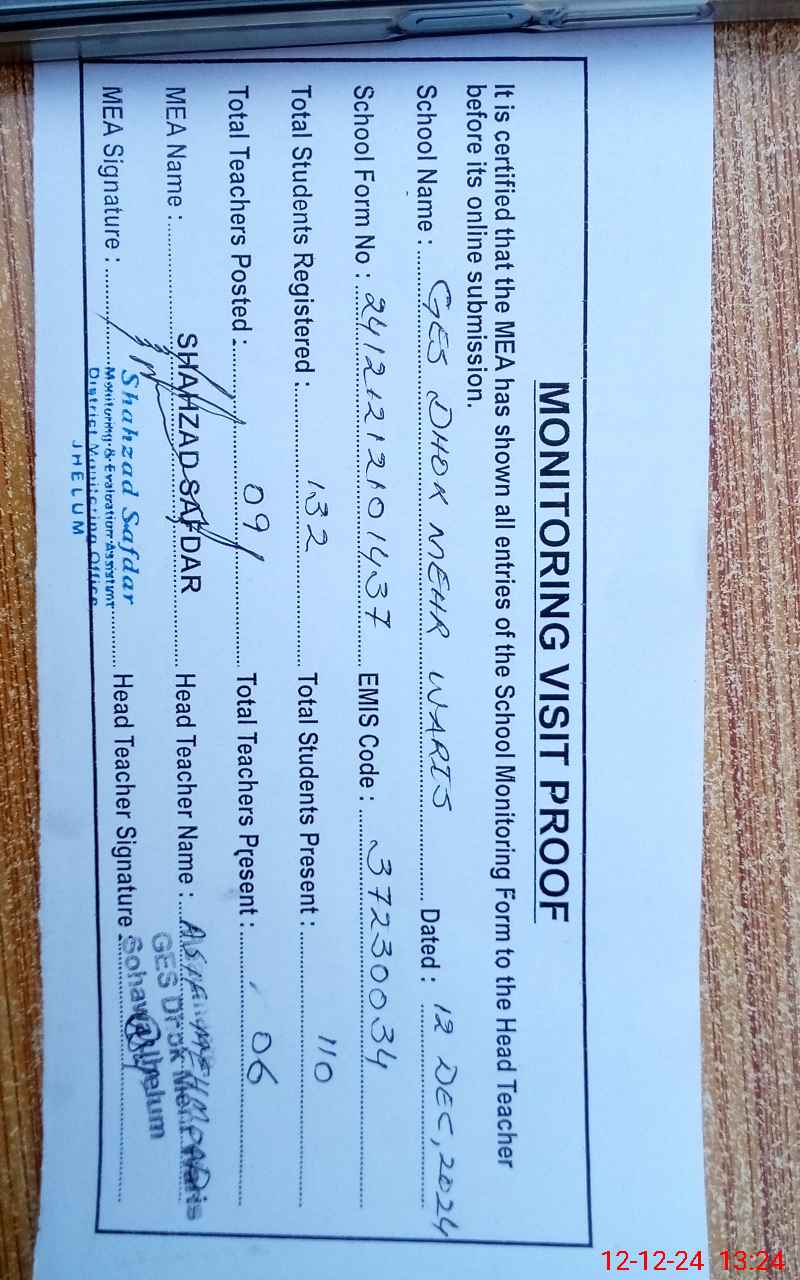 MONITORING VISIT PROOF
It is certified that the MEA has shown all entries of the School Monitoring Form to the Head Teacher
before its online submission.
School Name : GES DHOK MEHR WARIS Dated : 12 DEC, 2024
School Form No : 24121212101437 EMIS Code : 37230034
Total Students Registered : 132 Total Students Present : 110
Total Teachers Posted : 09 Total Teachers Present : 06
MEA Name : SHAHZAD SAFDAR Head Teacher Name :
GES Dhok Mehr Waris
MEA Signature : Head Teacher Signature :
Sohawa Jhelum
Shahzad Safdar
Monitoring & Evaluation Assistant
District Monitoring Office
JHELUM
12-12-24 13:24